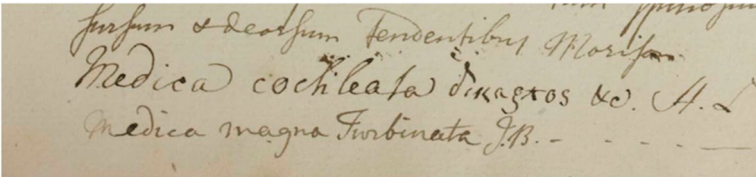 sursum & deorsum Tendentibus Moris
Medica cochleata δικαρπος &c. H. L
Medica magna Turbinata J.B. - - - - -